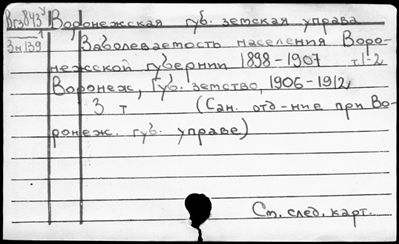 Вгз843 Воронежская губ. земская управа
3м139 Заболеваемость населения Воро-
нежской губернии 1898-1907 т.1-2
Воронеж, Губ. земство, 1906-1912,
3 т (Сан. отд-ние при Во-
ронеж. губ. управе)
См. след. карт.